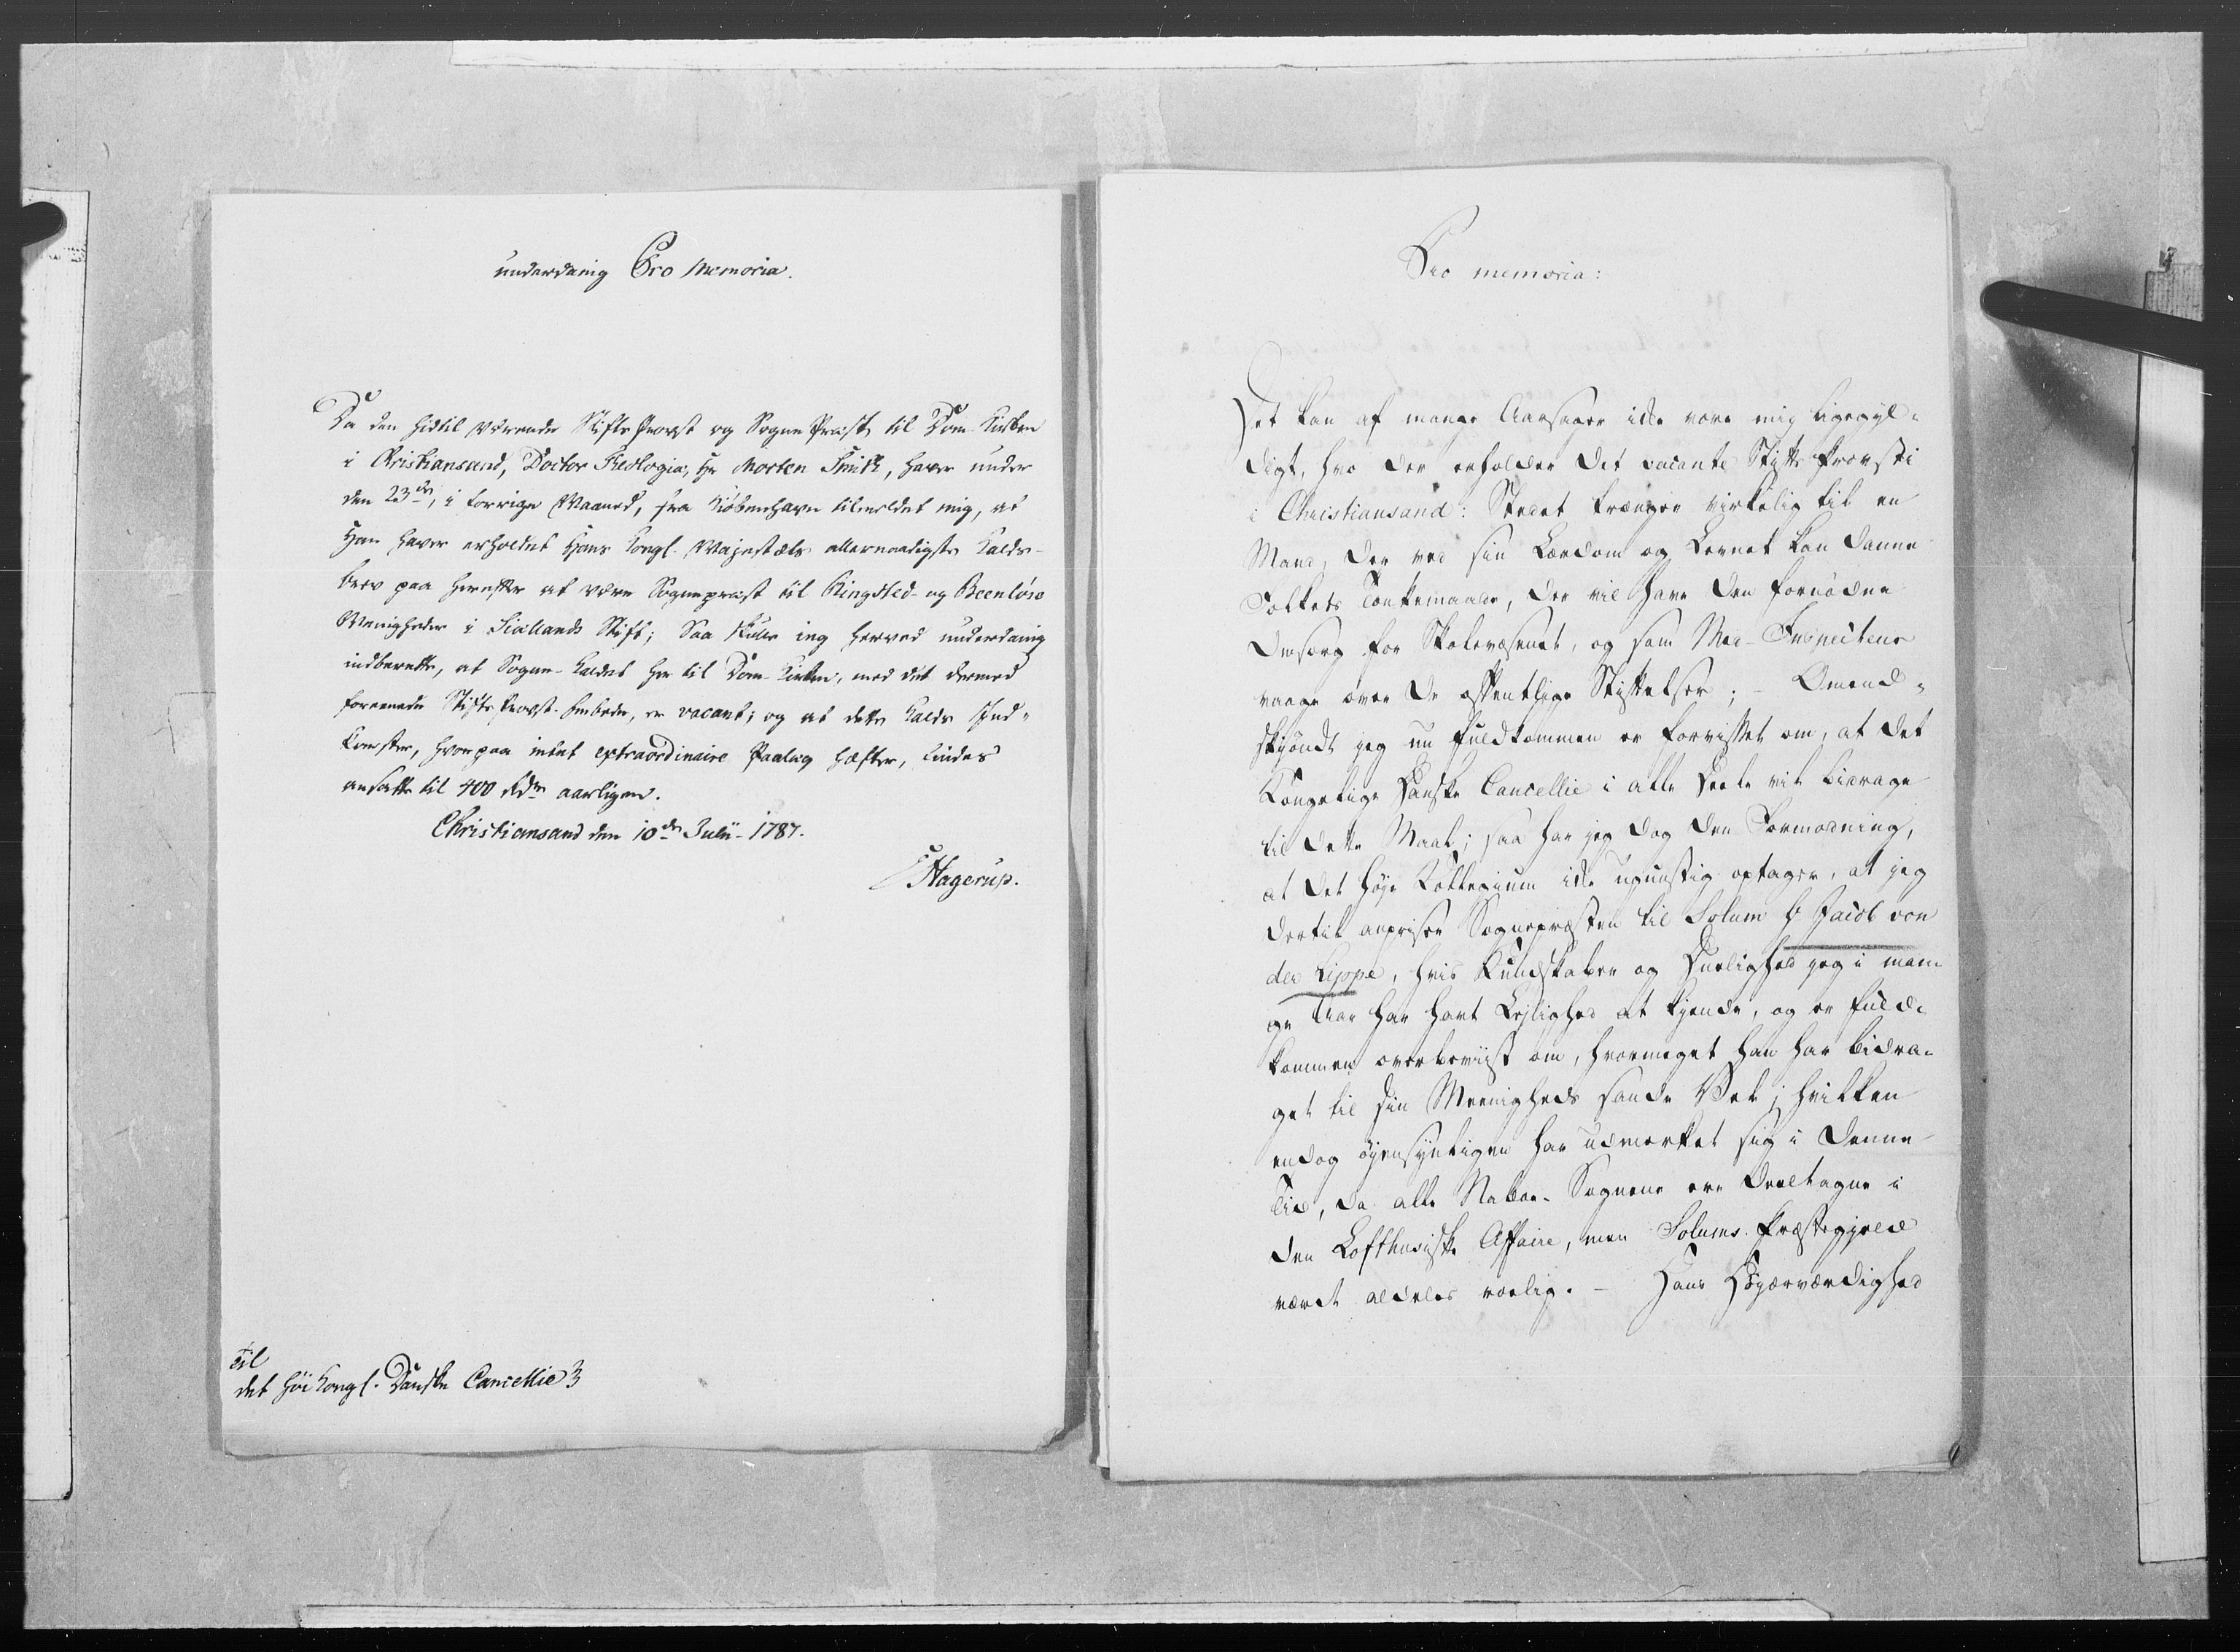 underdanig Pro Memoria.
Da den hidtil værende Stifts Provst og Sogne Præst til Dom-Kirken
i Christiansand, Doctor Theologiæ, Hr Morten Smith, haver under
den 23de, i forrige Maaned, fra Kiöbenhavn tilmeldet mig, at
Han haver erholdet Hans Kongl. Majestæts allernaadigste Kalds-
brev paa herefter at være Sognepræst til Ringsted- og Beenløse
Menigheder i Siællands Stift; Saa skulle jeg herved underdanig
indberette, at Sogne-Kaldet her til Dom-Kirken, med det dermed
foreenede Stifts Provst-Embede, er vacant; og at dette Kalds Ind-
komster, hvorpaa intet extraordinaire Paalæg hæfter, findes
ansatte til 400 Rdr aarligen.
Christiansand den 10de Julii 1787.
Hagerup.
Til
det høi Kongl. Danske Cancellie
Pro memoria:
Det kan af mange Aarsager ikke være mig ligegyl-
digt, hvo der erholder det vacante Stifts Provsti
i Christiansand: Stedet trænger virkelig til en
Mand, der ved sin Lærdom og Levnet kan danne
Folkets Tænkemaade, der vil have den fornødne
Omsorg for Skolevæsenet, og som Med-Inspecteur
vaage over de offentlige Stiftelser; - Omend-
skjøndt jeg nu fuldkommen er forvisset om, at det
Kongelige Danske Cancellie i alle Deele vil bidrage
til dette Maal; saa har jeg dog den Formodning,
at det høje Kollegium ikke ugunstig optager, at jeg
dertil anpriser Sognepræsten til Solum Hr Jacob von
der Lippe, hvis Kundskaber og Duelighed jeg i man-
ge Aar har havt Lejlighed at kjende, og er fuld-
kommen overbeviist om, hvormeget han har bidra-
get til sin Meenigheds sande Vel; hvilken
endog øjensynligen har udmærket sig i denne
Tid, da alle Naboe-Sognene ere deeltagne i
den Lofthusiske Affaire, men Solums Præstegjeld
været aldeles roelig. - Hans Højærværdighed